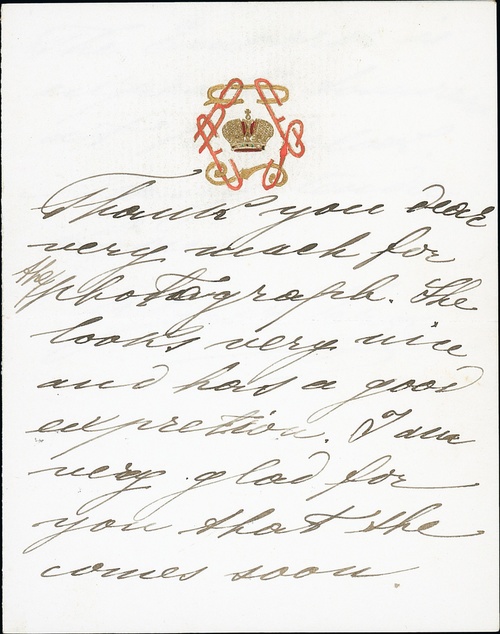 Thank you dear
very much for
the photograph. She
looks very nice
and has a good
expretion. I am
very glad for
you that she
comes soon.